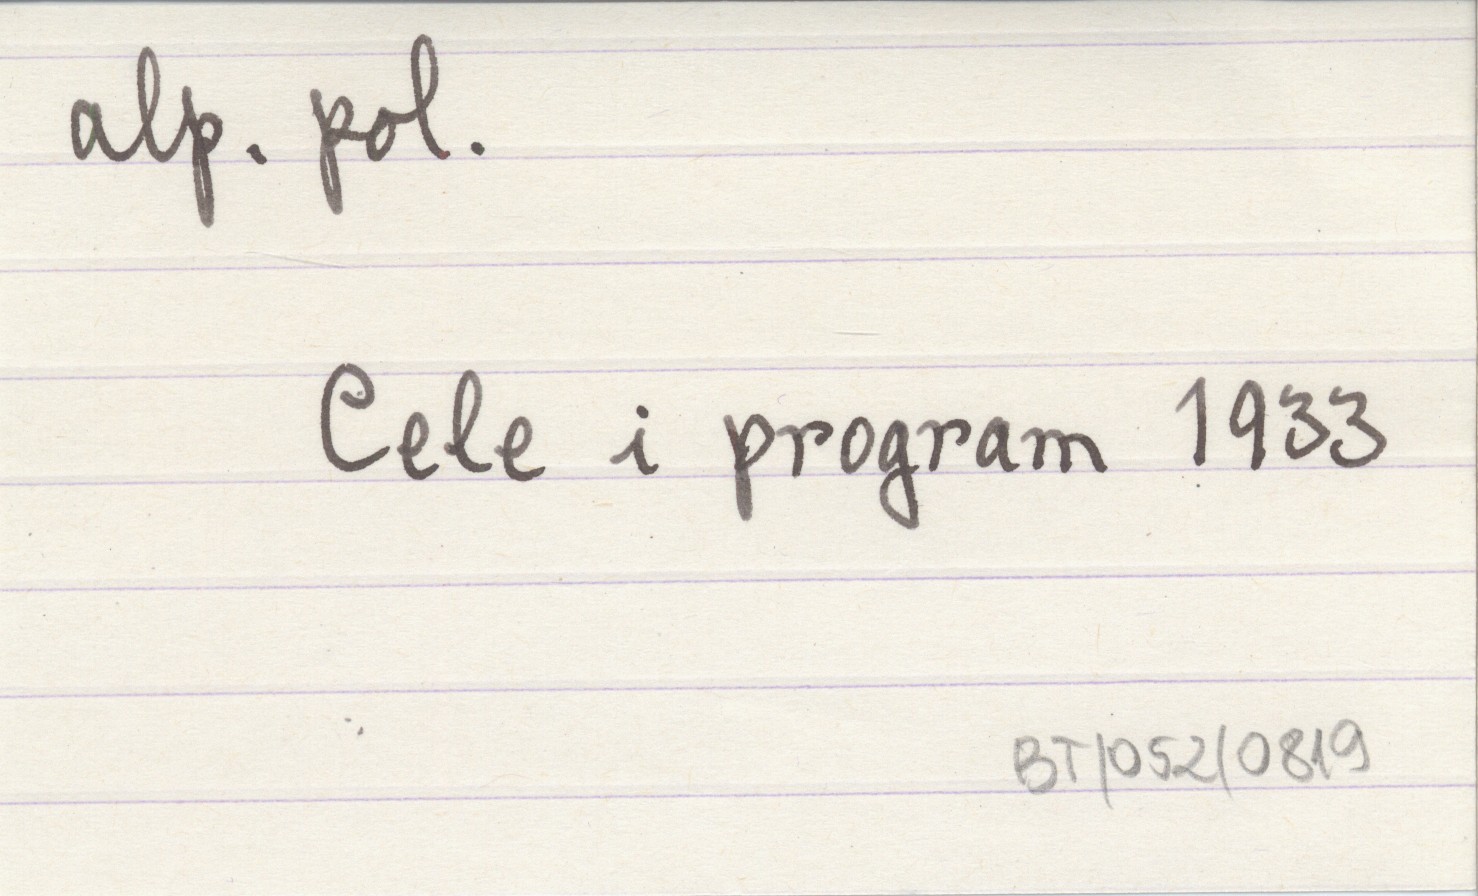 alp. pol.
Cele i program 1933
BT/052/0819